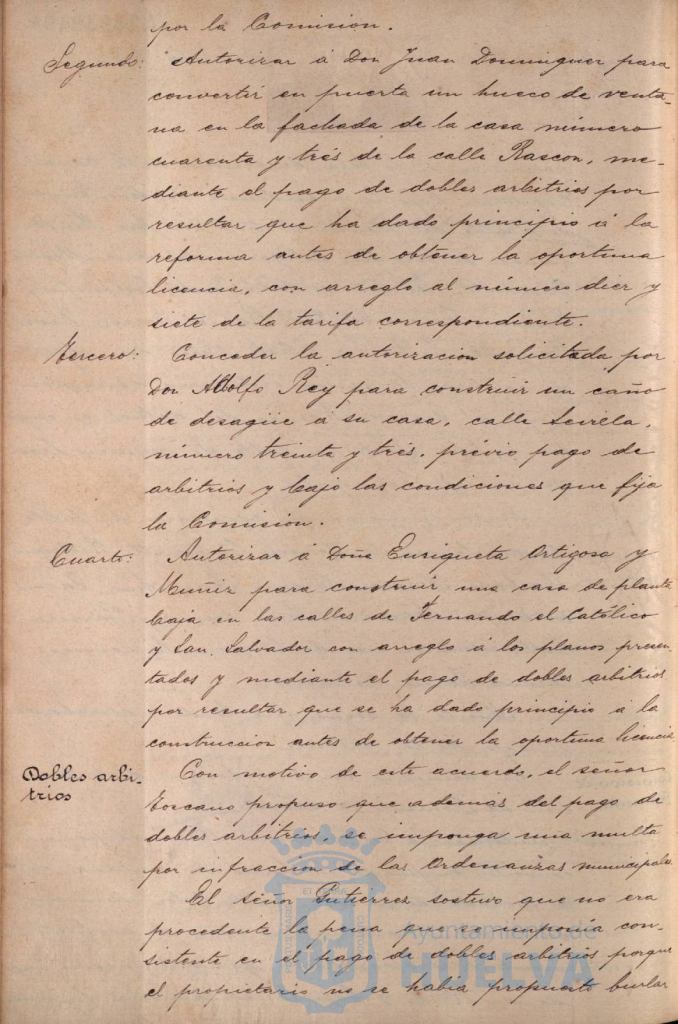 por la Comision.
Segundo: Autorizar á Don Juan Dominguez para
convertir en puerta un hueco de venta-
na en la fachada de la casa número
cuarenta y trés de la calle Rascon, me-
diante el pago de dobles arbitrios por
resultar que ha dado principio á la
reforma antes de obtener la oportuna
licencia, con arreglo al número diez y
siete de la tarifa correspondiente.
Tercero: Conceder la autorizacion solicitada por
Don Adolfo Rey para construir un caño
de desagüe á su casa, calle Sevilla,
número treinta y trés, prévio pago de
arbitrios y bajo las condiciones que fija
la Comision.
Cuarto: Autorizar á Doña Enriqueta Ortigosa y
Muñiz para construir una casa de planta
baja en las calles de Fernando el Católico
y San Salvador con arreglo á los planos presen-
tados y mediante el pago de dobles arbitrios
por resultar que se ha dado principio á la
construccion antes de obtener la oportuna licencia
Dobles arbi-
trios
Con motivo de este acuerdo, el señor
Toscano propuso que además del pago de
dobles arbitrios, se imponga una multa
por infraccion de las Ordenanzas municipales
El señor Gutierrez sostuvo que no era
procedente la pena que se imponía con-
sistente en el pago de dobles arbitrios porque
el propietario no se había propuesto burlar
Ayuntamiento de
HUELVA